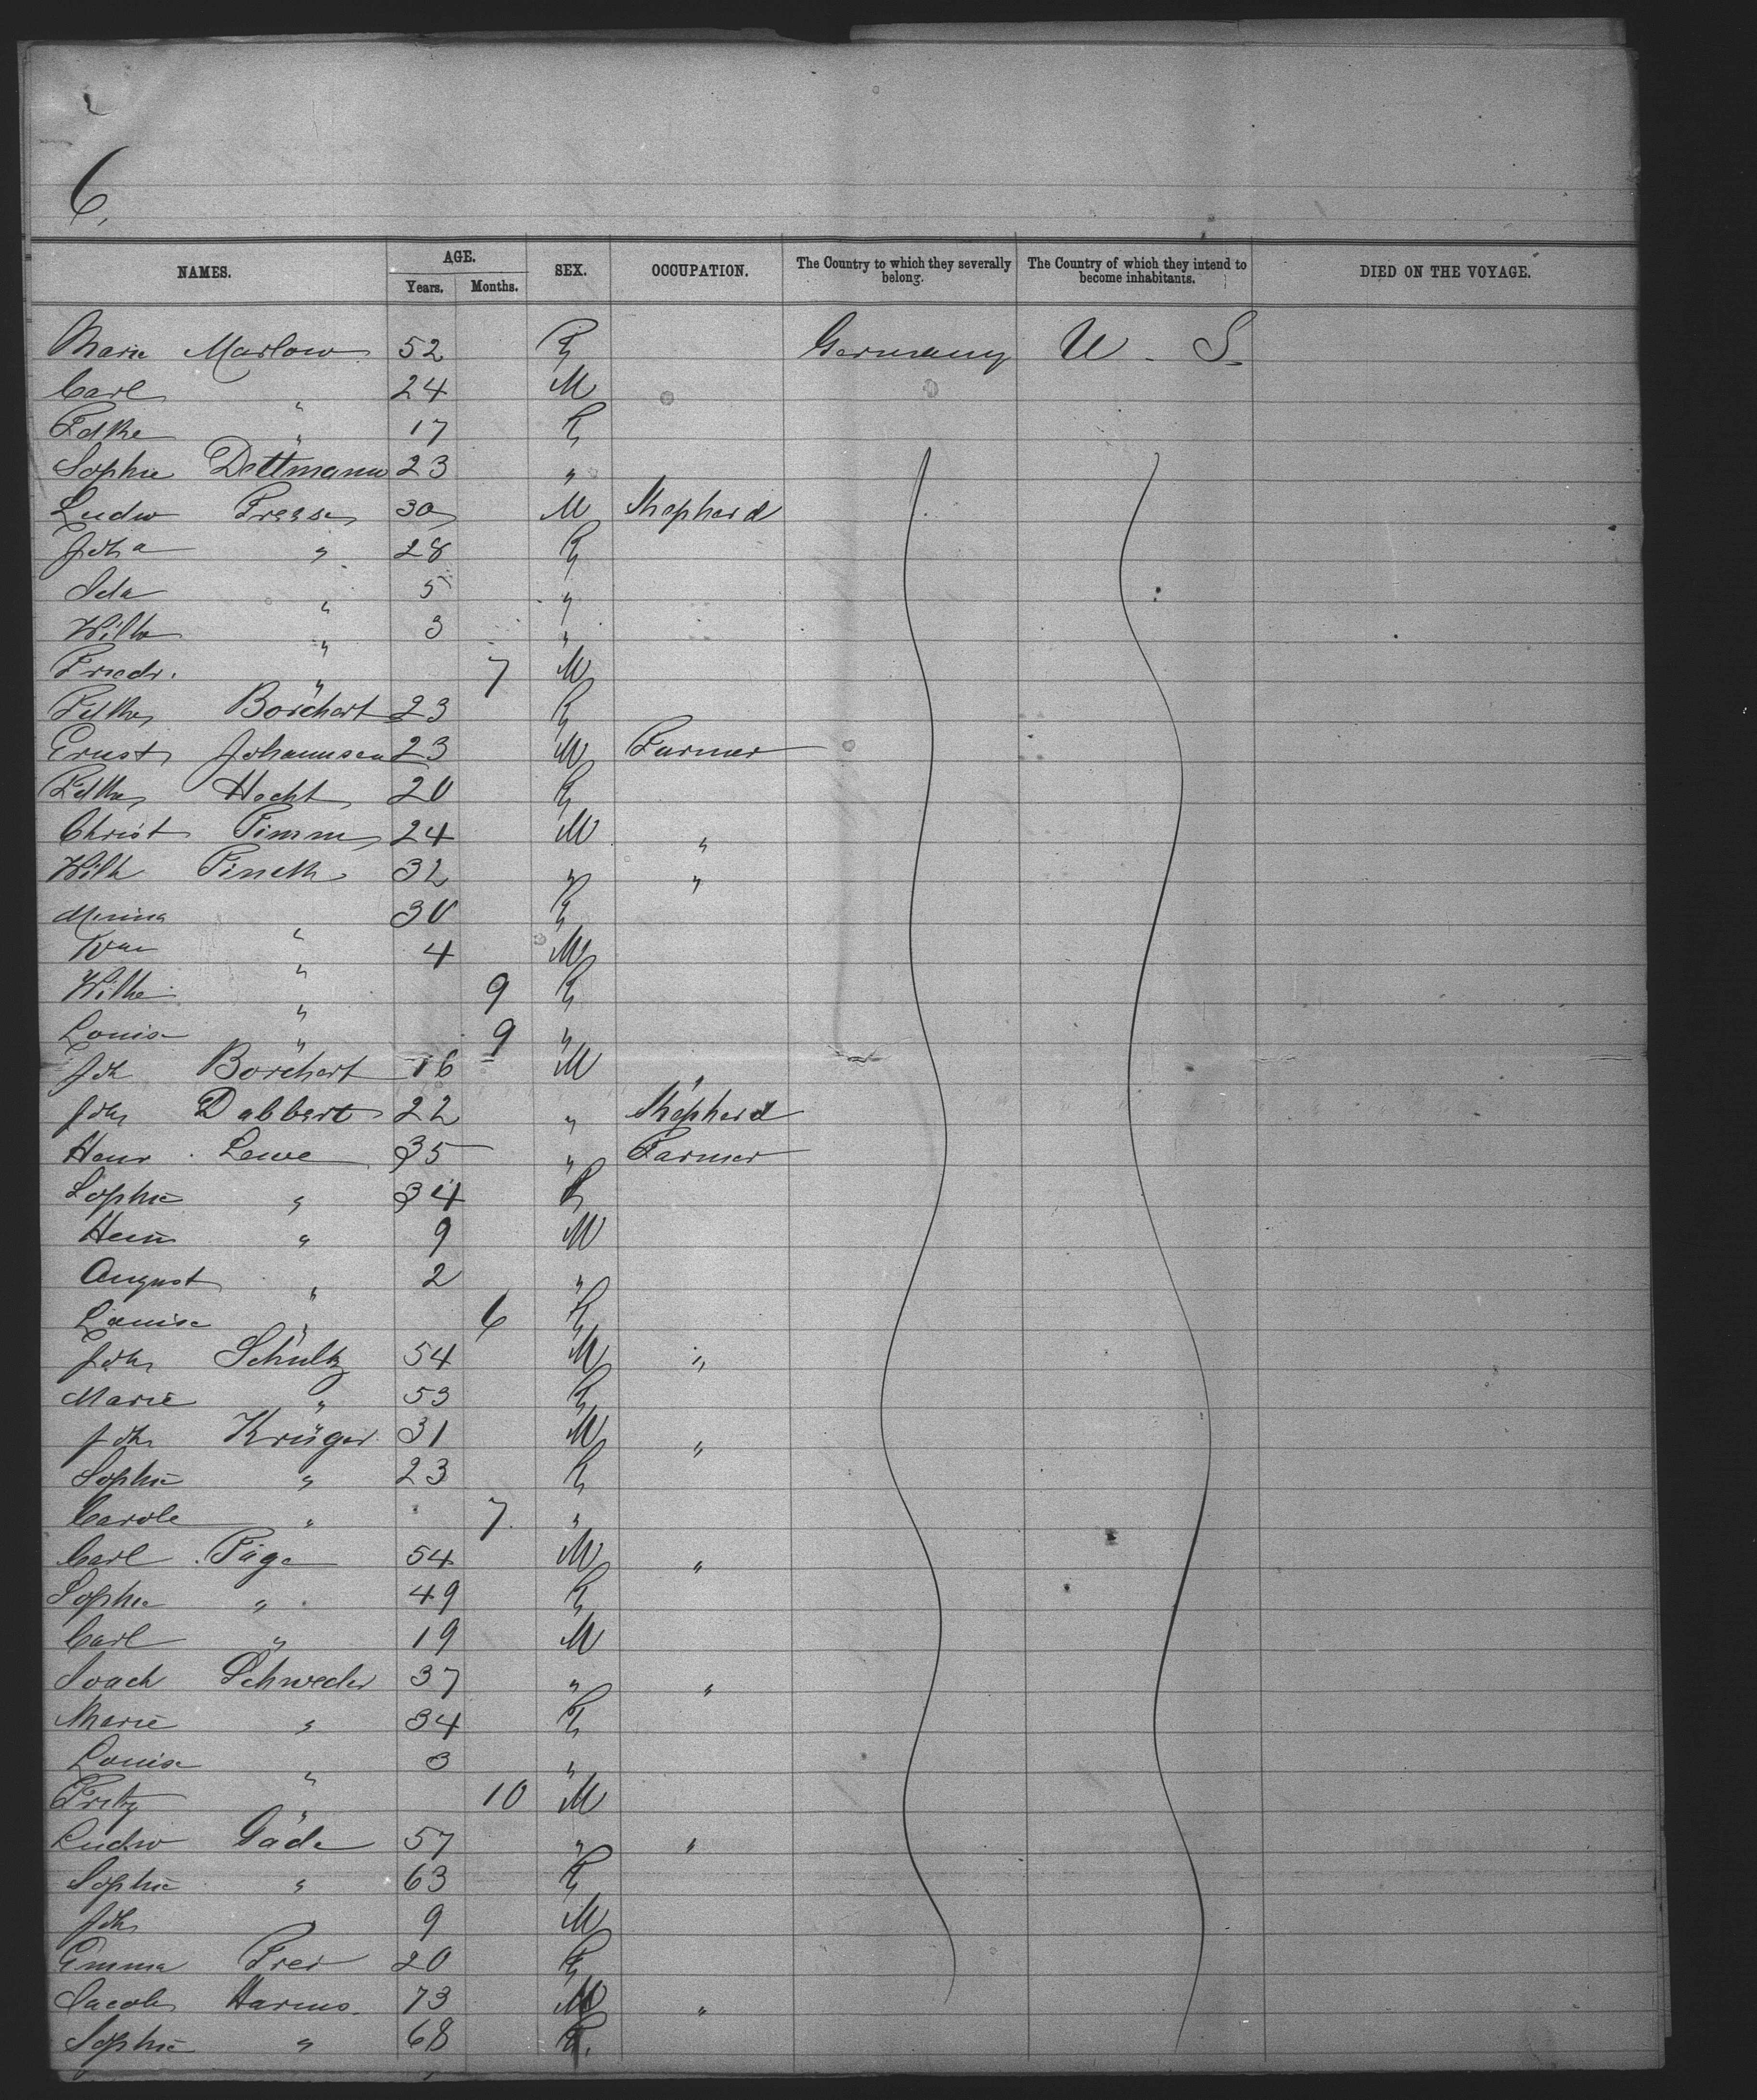 6.
NAMES. AGE. SEX. OCCUPATION. The Country to which they severally belong. The Country of which they intend to become inhabitants. DIED ON THE VOYAGE.
Years. Months.
Marie Marlow 52 F Germany U. S.
Carl " 24 M
Fdke " 17 F
Sophie Dettmann 23 "
Ludw Freese 30 M Shepherd
Joha " 28 F
Ida " 5 "
Wilh " 3 "
Friedr. " 7 M
Fdke Borchert 23 F
Ernst Johannsen 23 M Farmer
Fdke Hecht 20 F
Christ Timm 24 M "
Wilh 32 " "
Minna " 30 F
" 4 M
Wilhe " 9 F
Louise " 9 "
Joh Borchert 16 M "
Joh Dabbert 22 " Shepherd
Henr. Lewe 35 " Farmer
Sophie " 34 F
Hein " 9 M
August " 2 "
Louise " 6 F
Joh Schultz 54 M "
Marie " 53 F
Joh Krüger 31 M "
Sophie " 23 F
Carole " 7 "
Carl Page 54 M "
Sophie " 49 F
Carl " 19 M
Joach Schweder 37 " "
Marie " 34 F
Louise " 3 "
Fritz " 10 M
Ludw Gade 57 " "
Sophie " 63 F
Joh " 9 M
Emma Frei 20 F
Jacob Harms 73 M "
Sophie " 68 F.